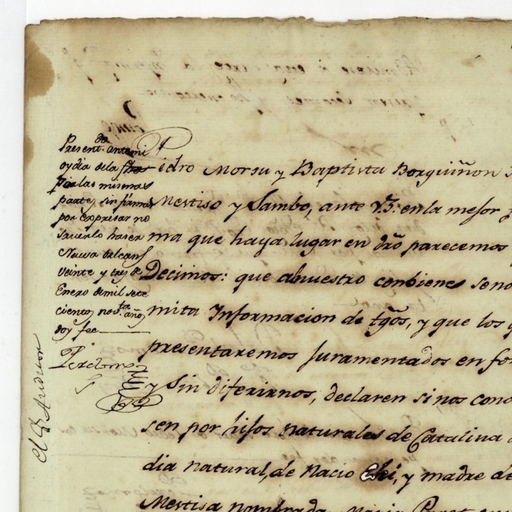 Present.da ante mi
oy dia de la fha
por las mismas
partes, sin firmar
por expresar no
saverlo haser
Nueva
veinte y tres de
Enero de mil sete
cientos nov.ta años
doy fee
Pedro Morsu y Baptista Borguiñon
Mestiso y Sambo, ante V.S. en la mejor
ma que haya lugar en dro parecemos
Decimos: que a nuestro conbiene se nos
mita Informacion de tgos, y que los q
presentaremos Juramentados en for
y sin diferirnos, declaren si nos cono
sen por hijos naturales de Catalina
dia natural, de Nacio y madre de
Mestisa nombrada Maria